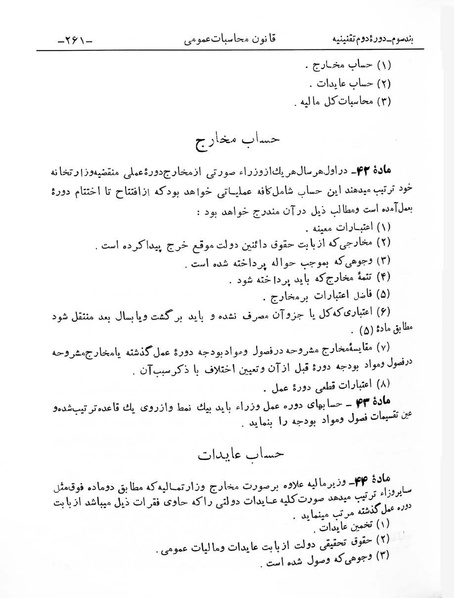 بند سوم ـ دورهٔ دوم تقنینیه قانون محاسبات عمومی ـ۲۶۱ـ
(۱) حساب مخارج .
(۲) حساب عایدات .
(۳) محاسبات کل مالیه .
حساب مخارج
مادهٔ ۴۲ـ در اول هر سال هر یک از وزراء صورتی از مخارج دورهٔ عملی منقضیه وزارتخانه
خود ترتیب میدهند این حساب شامل کافه عملیاتی خواهد بود که از افتتاح تا اختتام دورهٔ
بعمل آمده است و مطالب ذیل در آن مندرج خواهد بود :
(۱) اعتبارات معینه .
(۲) مخارجی که از بابت حقوق دائنین دولت موقع خرج پیدا کرده است .
(۳) وجوهی که بموجب حواله پرداخته شده است .
(۴) تتمهٔ مخارج که باید پرداخته شود .
(۵) فاضل اعتبارات بر مخارج .
(۶) اعتباری که کل یا جزو آن مصرف نشده و باید برگشت و یا بسال بعد منتقل شود
مطابق مادهٔ (۵) .
(۷) مقایسهٔ مخارج مشروحه در فصول و مواد بودجه دورهٔ عمل گذشته با مخارج مشروحه
در فصول و مواد بودجه دورهٔ قبل از آن و تعیین اختلاف با ذکر سبب آن .
(۸) اعتبارات قطعی دورهٔ عمل .
مادهٔ ۴۳ ـ حسابهای دوره عمل وزراء باید بیک نمط و از روی یک قاعده ترتیب شده و
عین تقسیمات فصول و مواد بودجه را بنماید .
حساب عایدات
مادهٔ ۴۴ـ وزیر مالیه علاوه بر صورت مخارج وزارت مالیه که مطابق دو ماده فوق مثل
سایر وزراء ترتیب میدهد صورت کلیه عایدات دولتی را که حاوی فقرات ذیل میباشد از بابت
دوره عمل گذشته مرتب مینماید .
(۱) تخمین عایدات .
(۲) حقوق تحقیقی دولت از بابت عایدات و مالیات عمومی .
(۳) وجوهی که وصول شده است .